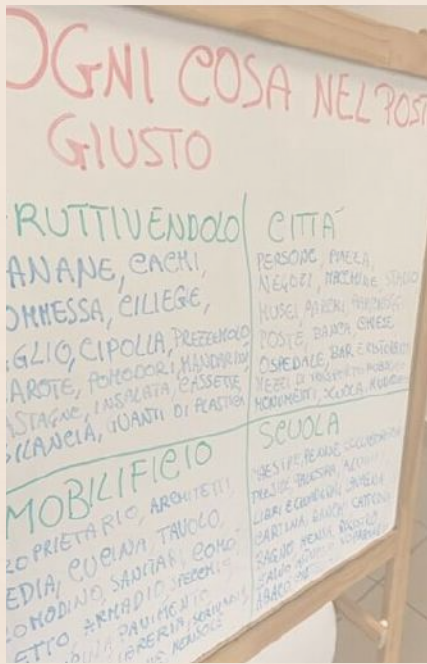 OGNI COSA NEL POST
GIUSTO
RUTTIVENDOLO
ANANE, CACHI,
OMMESSA, CILIEGE,
GLIO, CIPOLLA, PREZZEMOLO
AROTE, POMODORI, MANDARINI
ASTAGNE, INSALATA, CASSETTE,
BILANCIA, GUANTI DI PLASTICA
CITTÀ
PERSONE, PIAZZA,
NEGOZI, MACCHINE, STADIO
MUSEI, PARCHEGGI
POSTE, BANCA, CHIESE
OSPEDALE, BAR E RISTORANTI
MEZZI DI TRASPORTO
MONUMENTI, SCUOLA
MOBILIFICIO
ROPRIETARIO, ARCHITETTI,
EDIA, CUCINA, TAVOLO,
OMODINO, SANITARI, COMO
ETTO ARMADIO SPECCHIO
PAVIMENTO
LIBRERIA
MENSOLE
SCUOLA
MAESTRE, PENNE
PRESIDE, PALESTRA, ALUNNI
LIBRI E QUADERNI, LAVAGNA
CARTINA, BANCHI, CATTEDRA
BAGNO, MENSA